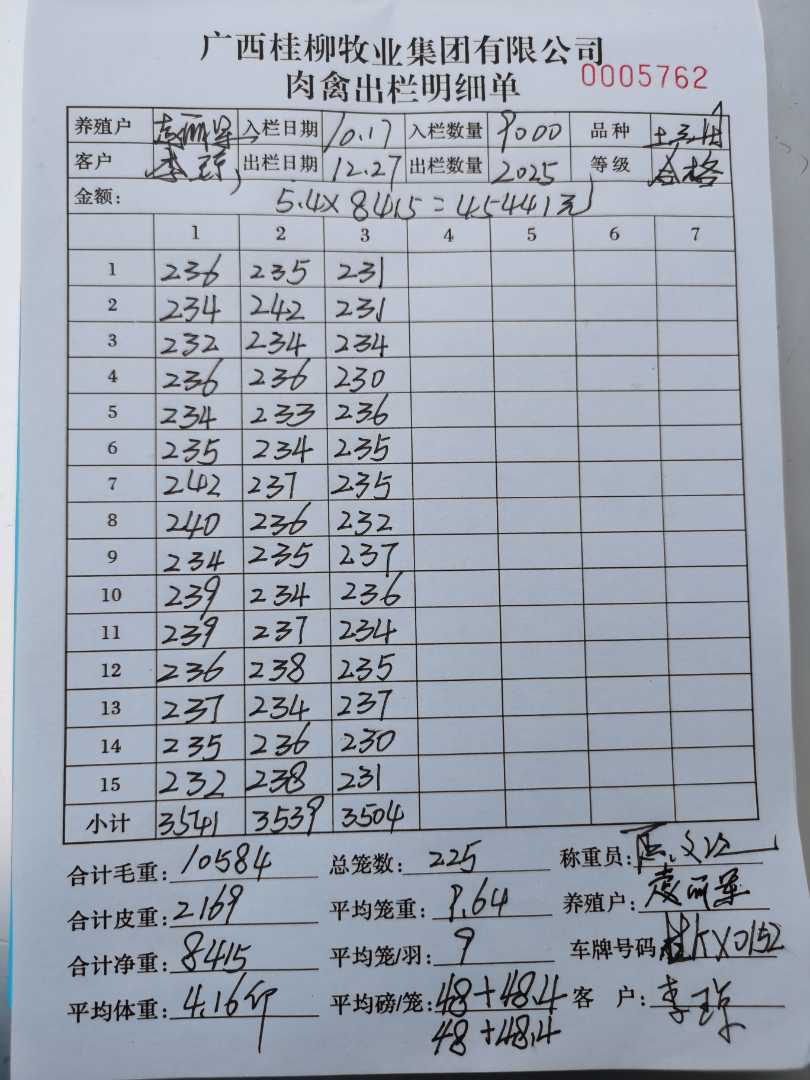 广西桂柳牧业集团有限公司
肉禽出栏明细单 0005762
养殖户 袁丽军 入栏日期 10.17 入栏数量 9000 品种
客户 李琼 出栏日期 12.27 出栏数量 2025 等级 合格
金额: 5.4×8415=45441元
1 2 3 4 5 6 7
1 236 235 231
2 234 242 231
3 232 234 234
4 236 236 230
5 234 233 236
6 235 234 235
7 242 237 235
8 240 236 232
9 234 235 237
10 239 234 236
11 239 237 234
12 236 238 235
13 237 234 237
14 235 236 230
15 232 238 231
小计 3541 3539 3504
合计毛重: 10584 总笼数: 225 称重员:
合计皮重: 2169 平均笼重: 9.64 养殖户: 袁丽军
合计净重: 8415 平均笼/羽: 9 车牌号码 桂KX0152
平均体重: 4.16斤 平均磅/笼: 48+48.4 客 户: 李琼
48+48.4